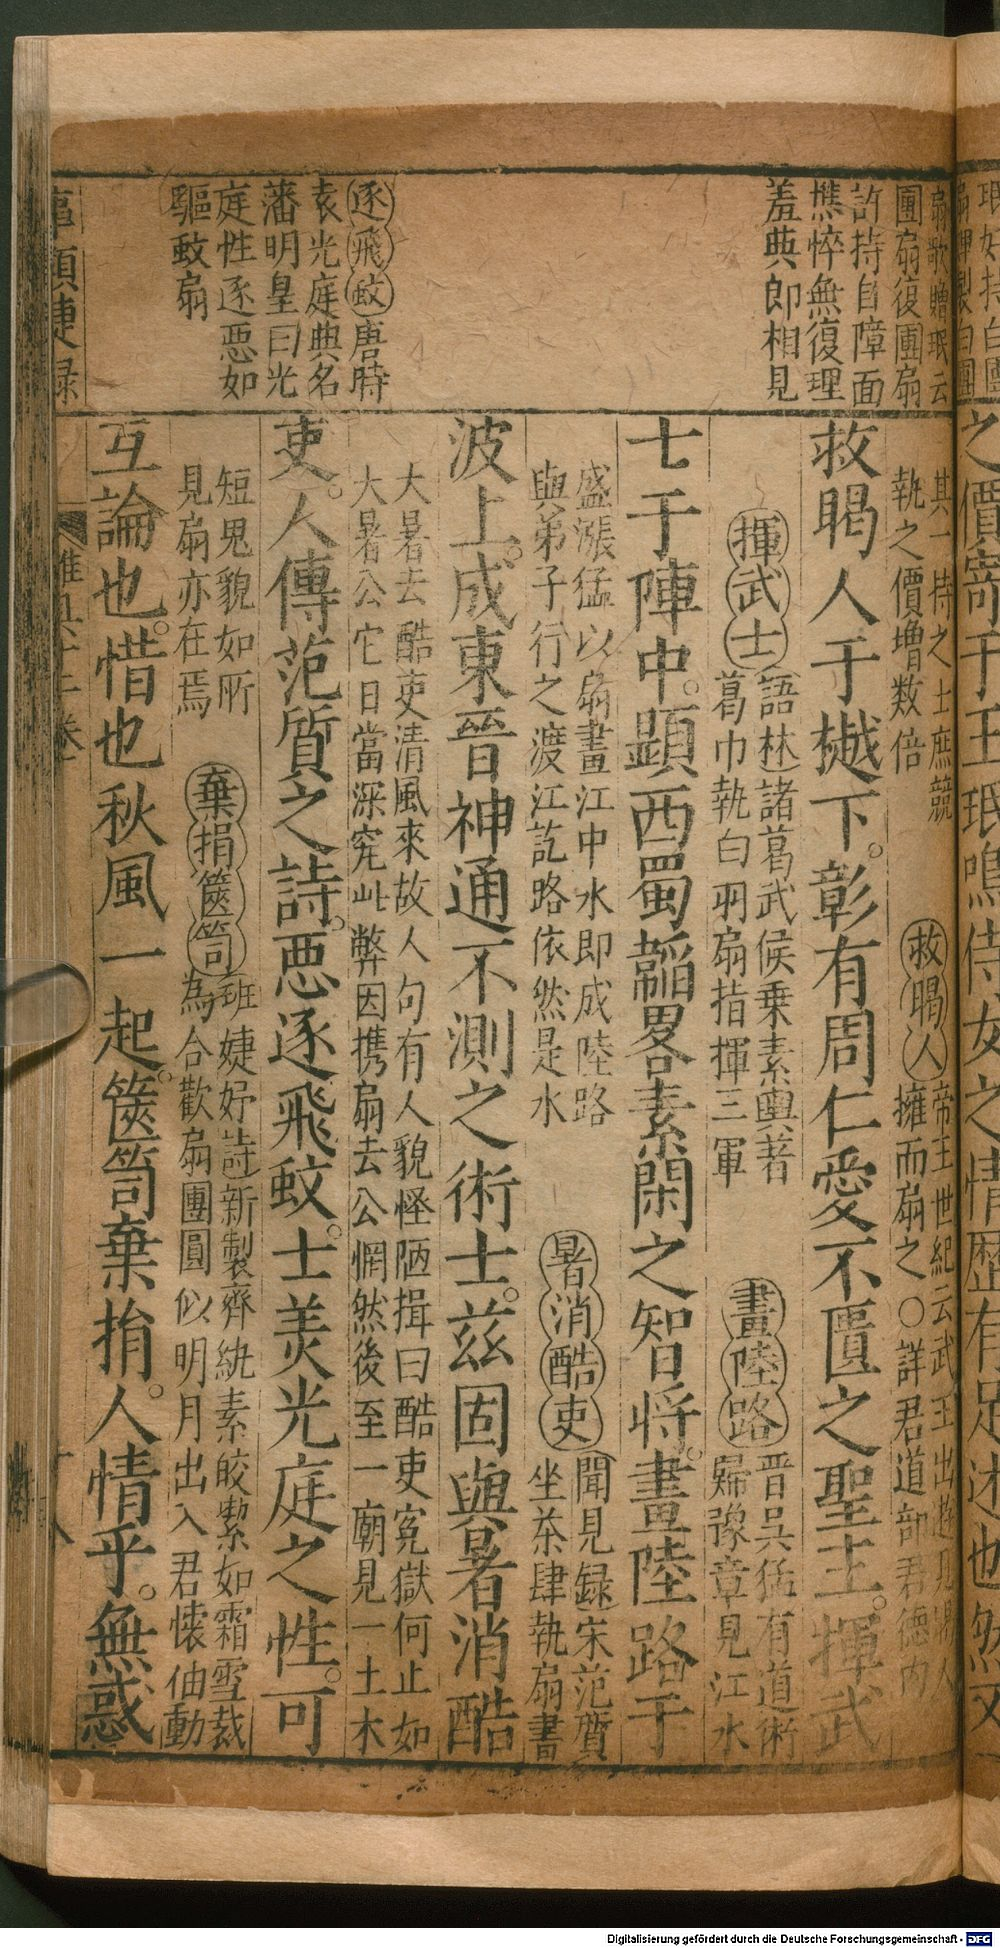 扇歌贈珉云
團扇復團扇
許持自障面
憔悴無復理
羞與郎相見
逐飛蚊唐時
袁光庭典名
藩明皇曰光
庭性逐惡如
驅蚊扇
其一持之士庶競
執之價增数倍
救暍人
帝王世紀云武王出遊見暍人
擁而扇之〇詳君道部君德内
救暍人于樾下。彰有周仁愛不匱之聖主。揮武
揮武士
語林諸葛武侯乗素輿著
葛巾執白羽扇指揮三軍
畫陸路
晋吳猛有道術
歸豫章見江水
士于陣中。顕西蜀韜畧素閑之智将。畫陸路于
盛漲猛以扇畫江中水即成陸路
與弟子行之渡江訖路依然是水
暑消酷吏
聞見録宋范質
坐茶肆執扇書
波上。成東晉神通不測之術士。兹固與暑消酷
大暑去酷吏清風來故人句有人貌怪陋揖曰酷吏寃獄何止如
大暑公它日當深究此弊因携扇去公惘然後至一廟見一土木
吏。人傳范質之詩。惡逐飛蚊。士羙光庭之性。可
短鬼貌如所
見扇亦在焉
棄捐篋笥
班婕妤詩新製齊紈素皎絜如霜雪裁
為合歡扇團圓似明月出入君懐䄂動
互論也。惜也秋風一起。篋笥棄捐。人情乎。無惑
事類捷録
珉好持白團
之價寄千王珉鳴侍女之情歴有足述也然又
Digitalisierung gefördert durch die Deutsche Forschungsgemeinschaft - DFG